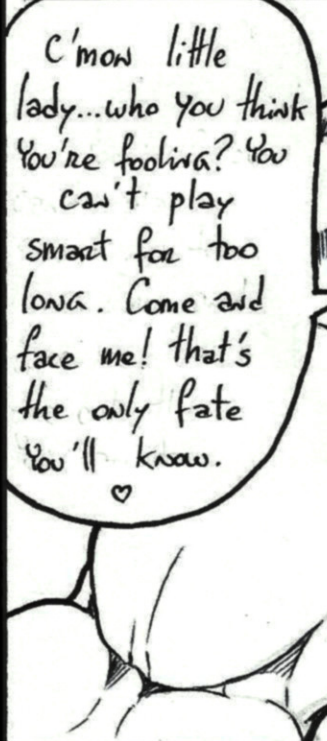 C'mon little
lady...who you think
You're fooling? You
can't play
smart for too
long. Come and
face me! that's
the only fate
You'll know.
♡